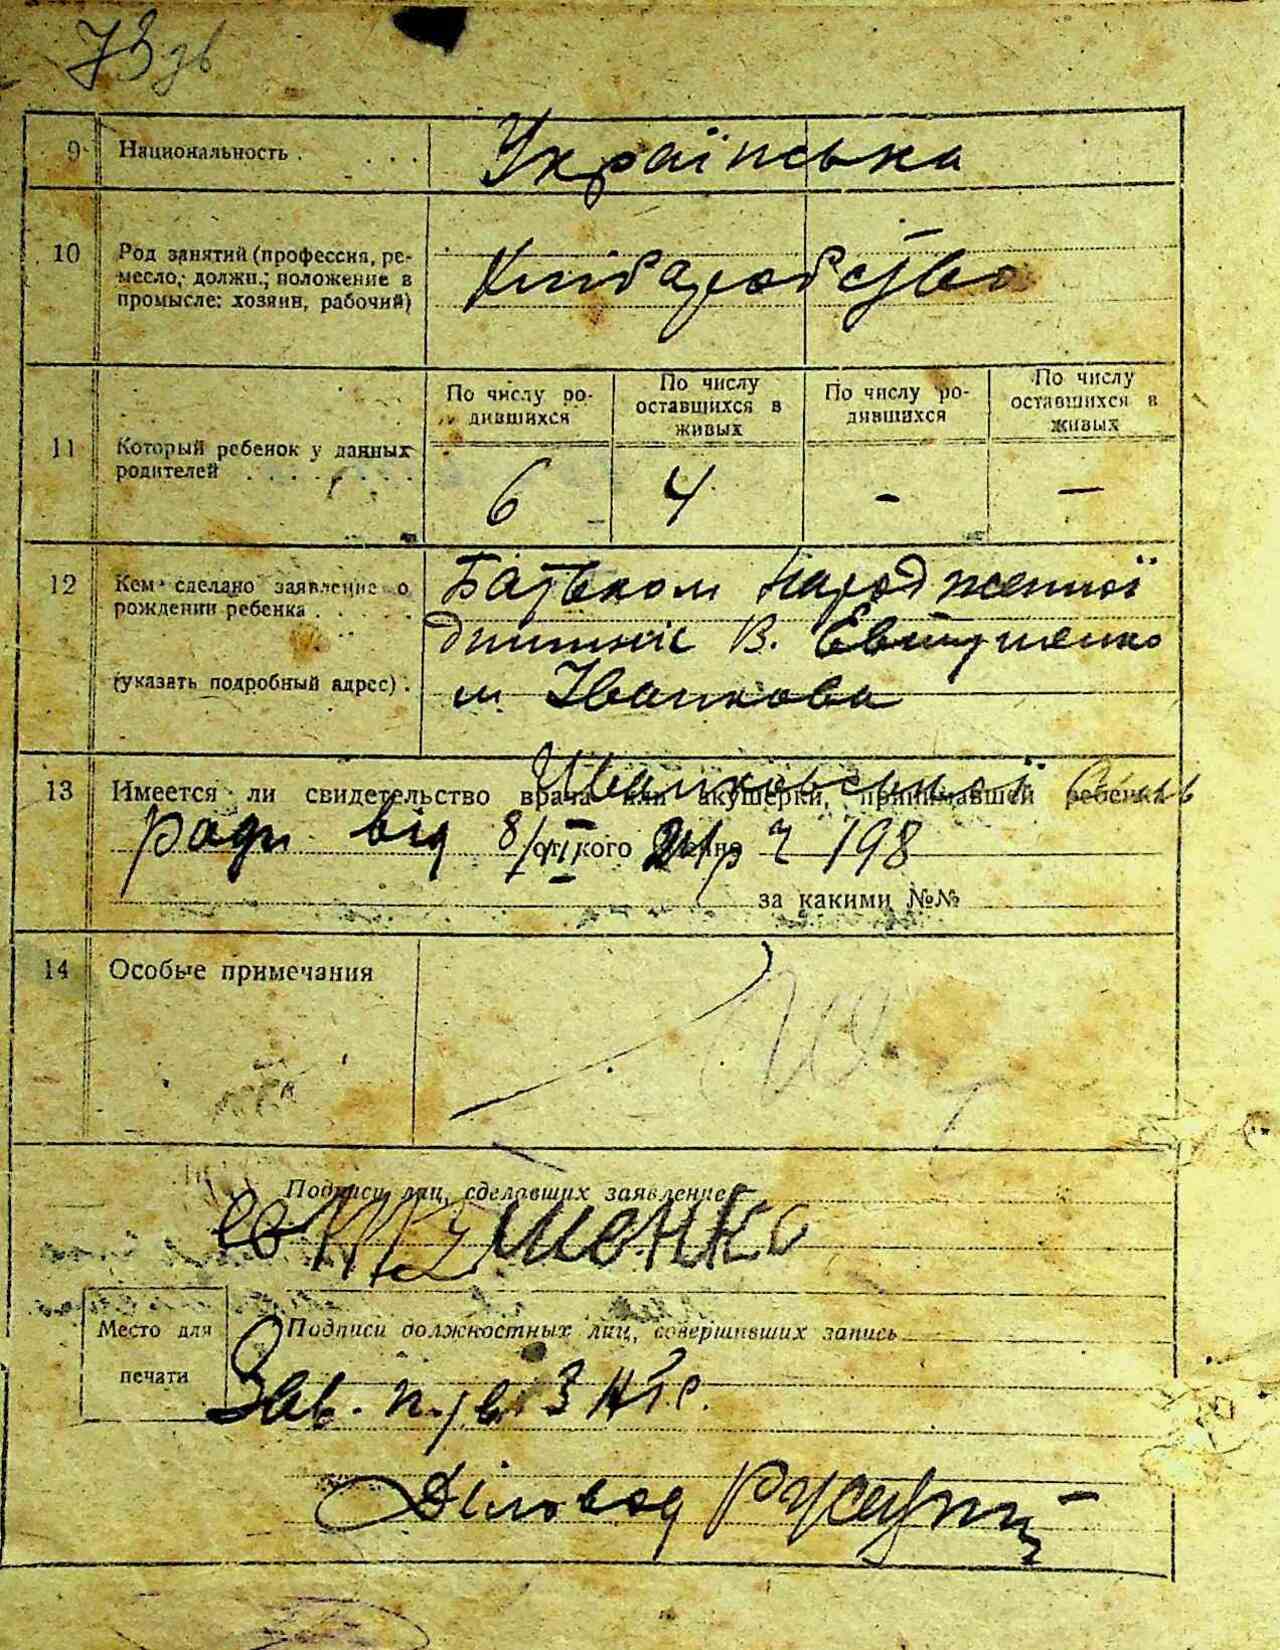 73 зв
9 Национальность . . . . Українська
10 Род занятий (профессия, ре-
месло, должн.; положение в
промысле: хозяин, рабочий) Хліборобство
По числу ро-
дившихся
По числу
оставшихся в
живых
По числу ро-
дившихся
По числу
оставшихся в
живых
11 Который ребенок у данных
родителей . . . . . . . 6 4 - —
12 Кем сделано заявление о
рождении ребенка . . . .
(указать подробный адрес) .
Батьком народженної
дитини В. Евтушенко
м Іванкова
13 Имеется ли свидетельство врача или акушерки, принимавшей ребенка
Иванковської
от кого именно
ради від 8/VI 21р № 198
за какими №№
14 Особые примечания
Подписи лиц, сделавших заявление
евтушенко
Место для
печати
Подписи должностных лиц, совершивших запись
Зав. п/в ЗАГС.
Діловод